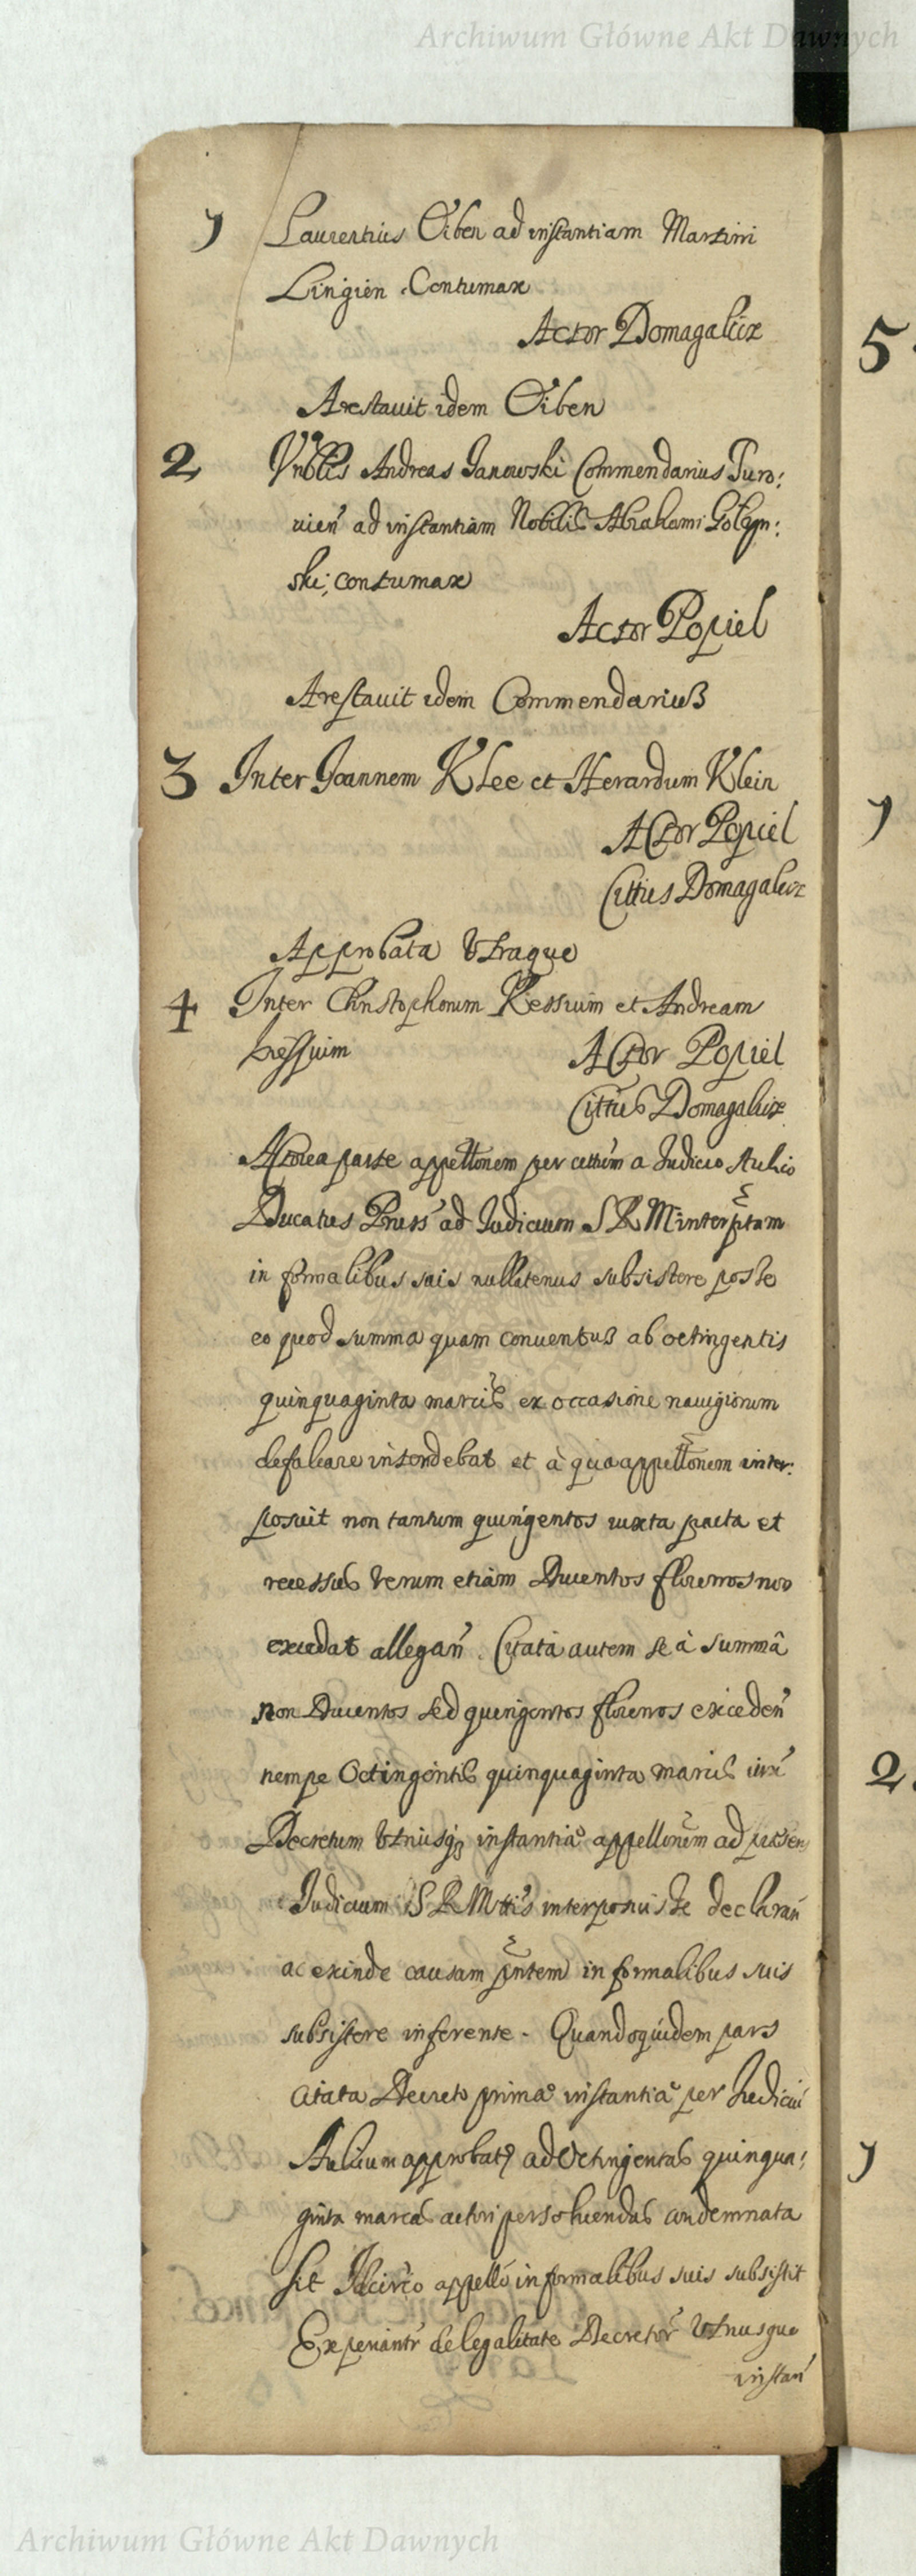 Archiwum Główne Akt Dawnych
1 Laurentius Eiben ad instantiam Martini
Lingien Contumax
Actor Domagalicz
Arestauit idem Eiben
2 Vnblis Andreas Janowski Commendarius Puro:
uien̄ ad instantiam Nobilis Abrahami Golÿn:
ski; contumax
Actor Popiel
Arestauit idem Commendariuß
3 Inter Joannem Klee et Herardum Klein
Actor Popiel
Cittus Domagalicz
Approbata Vtraque
4 Inter Christophorum Ressium et Andream
Actor Popiel
Cittus Domagalicz
Actorea parte appellonem per cittum a Judicio Aulico
Ducatus Pruss ad Judicium S R M interptam
in formalibus suis nullatenus subsistere posse
eo quod summa quam conuentuß ab octingentis
quinquaginta marcis ex occasione nauigiorum
defalcare intendebat et à qua appellonem inter:
posuit non tantum quingentos iuxta pacta et
recessus verum etiam Ducentos florenos non
excedat allegan̄. Citata autem se à summâ
non Ducentos sed quingentos florenos exceden̄
nempe Octingentis quinquaginta marcis
Decretum Vtriusq; instantiæ appellonem ad
Judicium S R Mttis interposuisse declaran̄
ac exinde causam pntem in formalibus suis
subsistere inferente. Quandoquidem pars
citata Decreto primæ instantiæ per Judiciū
Aulicum approbat ad Octingentas quinqua:
ginta marcas actori persoluendas condemnata
sit Idcirco appello in formalibus suis subsistit
Experiantr de legalitate Decretor Vtriusque
instan̄
5
1
2.
1
Archiwum Główne Akt Dawnych